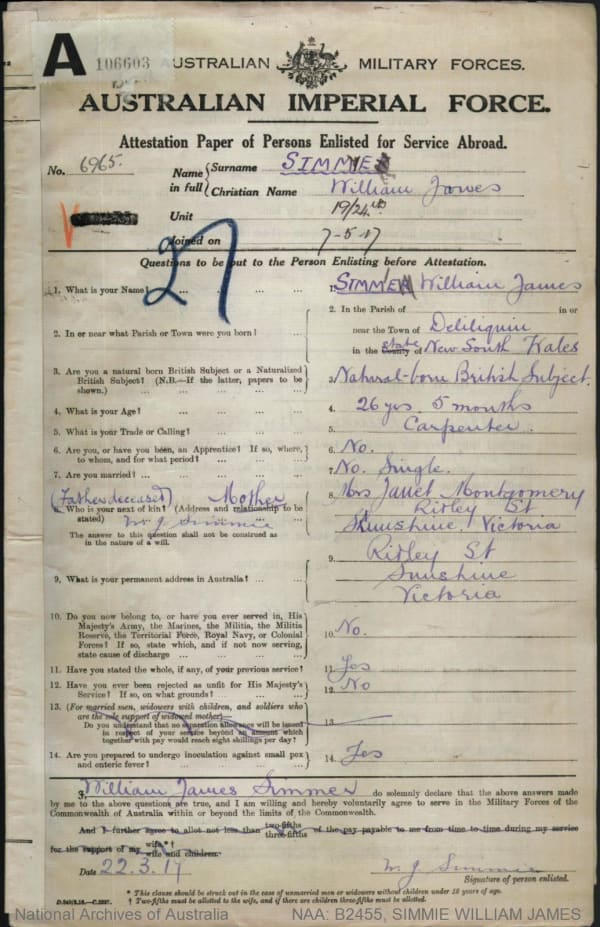 A 106603 AUSTRALIAN MILITARY FORCES.
AUSTRALIAN IMPERIAL FORCE.
Attestation Paper of Persons Enlisted for Service Abroad.
No. 6965.
Name in full
Surname SIMMIE
Christian Name William James
Unit 19/24th
Joined on 7-5-17
27
Questions to be put to the Person Enlisting before Attestation.
1. What is your Name? ... ... ... ...
1. SIMMIE William James
2. In or near what Parish or Town were you born? ...
2. In the Parish of in or
near the Town of Deliliquin
in the County state of New South Wales
3. Are you a natural born British Subject or a Naturalized
British Subject? (N.B.—If the latter, papers to be
shown.) ... ... ... ... ...
3. Natural-born British Subject.
4. What is your Age? ... ... ... ...
4. 26 yrs 5 months
5. What is your Trade or Calling? ... ... ...
5. Carpenter.
6. Are you, or have you been, an Apprentice? If so, where,
to whom, and for what period? ... ... ...
6. No.
7. Are you married? ... ... ... ...
7. No. Single.
(Father deceased) Mother
8. Who is your next of kin? (Address and relationship to be
stated) W. J Simmie
The answer to this question shall not be construed as
in the nature of a will.
8. Mrs Janet Montgomery
Ridley St
Sunshine, Victoria
9. What is your permanent address in Australia? ... ...
9. Ridley St
Sunshine
Victoria
10. Do you now belong to, or have you ever served in, His
Majesty's Army, the Marines, the Militia, the Militia
Reserve, the Territorial Force, Royal Navy, or Colonial
Forces? If so, state which, and if not now serving,
state cause of discharge ... ... ... ...
10. No.
11. Have you stated the whole, if any, of your previous service?
11. Yes
12. Have you ever been rejected as unfit for His Majesty's
Service? If so, on what grounds? ... ... ...
12. No
13. (For married men, widowers with children, and soldiers who
are the sole support of widowed mother)—
Do you understand that no separation allowance will be issued
in respect of your service beyond an amount which
together with pay would reach eight shillings per day?
13.
14. Are you prepared to undergo inoculation against small pox
and enteric fever? ... ... ... ...
14. Yes
I, William James Simmer do solemnly declare that the above answers made
by me to the above questions are true, and I am willing and hereby voluntarily agree to serve in the Military Forces of the
Commonwealth of Australia within or beyond the limits of the Commonwealth.
And I further agree to allot not less than two-fifths three-fifths of the pay payable to me from time to time during my service
for the support of my wife*† wife and children.
Date 22.3.17
W. J Simmie
Signature of person enlisted.
* This clause should be struck out in the case of unmarried men or widowers without children under 18 years of age.
† Two-fifths must be allotted to the wife, and if there are children three-fifths must be allotted.
National Archives of Australia
NAA: B2455, SIMMIE WILLIAM JAMES